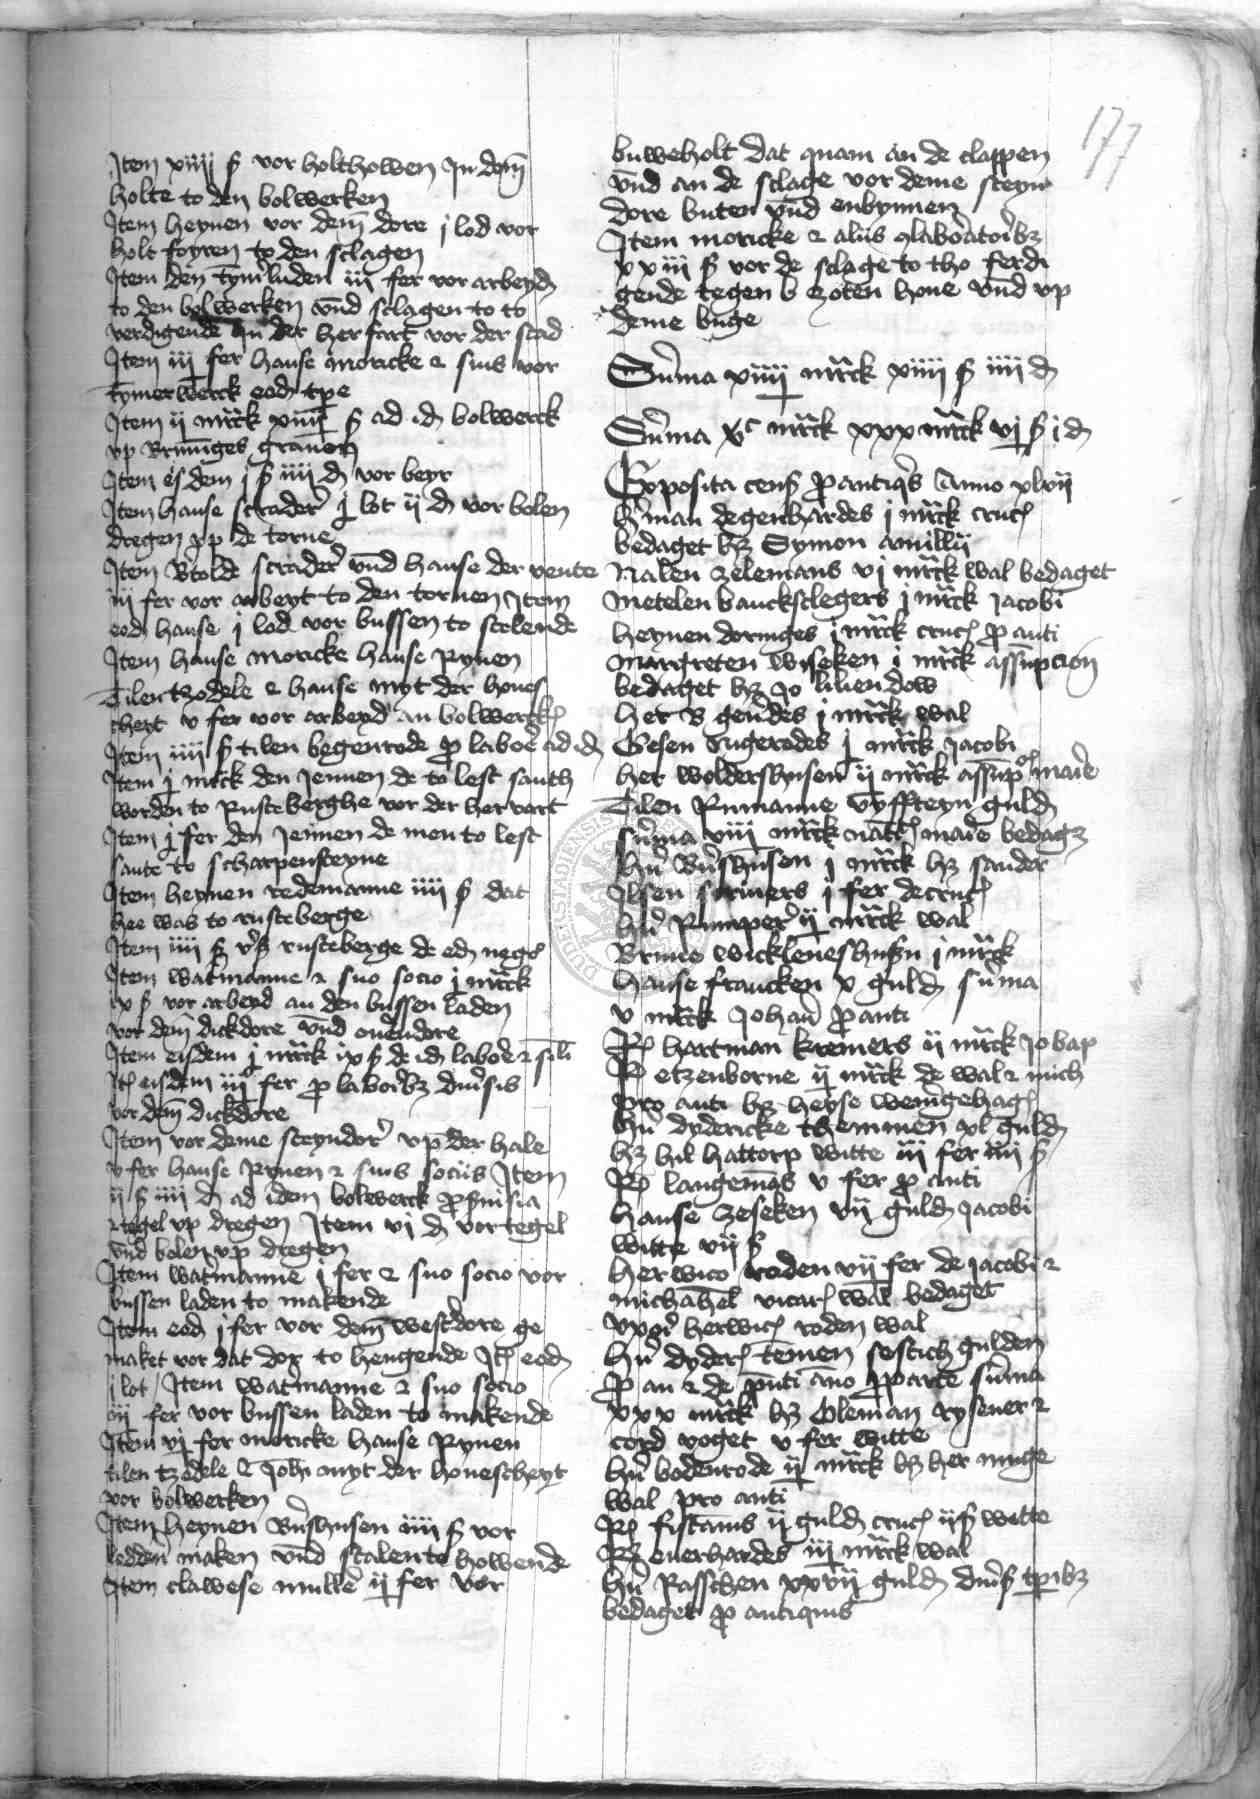 177
Item xiiij ß vor holthowen In dem̄
holte to den bolwerken
Item heynen vor dem̄ dore j lod vor
holt foyren to den sclagen
Item den tym̄luden iij fer vor arbeyd
to den bolwerken vnd sclagen to to
verdigende In der herfart vor der stad
Item iij fer hanse moricke & suis vor
tymerwerck eod tpe
Item ij mrck xiiij ß ad id bolwerck
vp Brunīges grauen
Item esdem j ß iiij d vor beyr
Item hanse scrader j lot ij d vor bolen
dregen vp de torne
Item Btolde scrader vnd hanse der vente
iij fer vor arbeyt to den tornen Item
eod hanse j lod vor bussen to stelende
Item hanse moricke hanse Rynen
Tilen tzodele & hanse myt der houes
cheyt v fer vor arbeyd an bolwerck
Item iiij ß tilen begenrode p labore ad id
Item j mrck den Jennen de to lest santh
worden to Rusteberghe vor der hervart
Item j fer den Jennen de men to lest
sante to scharpensteyne
Item heynen redemanne iiij ß dat
hee was to rusteberge
Item iiij ß vs rusteberge de eod nego
Item watmanne & suo socio j mrck
ix ß vor arbeyd an den bussen laden
vor dem̄ dickdore vnd ouendore
Item eisdem j mrck ix ß de id labore & sil
It eisdem iij fer p laboribz diuersis
vor dem̄ dickdore
Item vor deme steyndor vp der hale
v fer hanse Rynen & suis sociis Item
ij ß iiij d ad idem bolwerck
tegel vp dregen Item vj d vor tegel
vnd bolen vp dregen
Item watmanne j fer & suo socio vor
bussen laden to makende
Item eod j fer vor dem̄ westdore ge
maket vor dat dor to hengende It eod
j lot / Item watmanne & suo socio
iij fer vor bussen laden to makende
Item vj fer moricke hanse Rynen
tilen tzodele & Johan myt der houescheyt
vor bolwerken
Item heynen Bnshusen iiij ß vor
ledden maken vnd stalente howende
Item clawese muller ij fer vor
buweholt dat quam an de clappen
vnd an de sclage vor deme steyn
dore buten vnd enbynnen
Item moricke & aliis laboratoribz
xxiij ß vor de sclage to tho ferdi
gende tegen b zoten houe vnd vp
deme buge
Sūma xiiij mrck xiiij ß iiij d
Sūma mrck xxx mrck vj ß j d
Exposita cens p antiqis Anno xlvij
hman degenhardes j mrck cruc
bedaget bz Symon amilly
Nalen zelemans vj mrck wal bedaget
Metelen bancksclegers j mrck Jacobi
heynen doringes j mrck cruc p anti
margreten wiseken j mrck assupcion
bedaget bz Jo liliendow
her B gendes j mrck wal
Gesen Rugerodes j mrck Jacobi
her woldershusen ij mrck assup marie
Tilen Rumanne vyffteyn guld
sūma viij mrck nat marie bedagz
hn Bnshusen j mrck bz sander
Ilsen scriuers j fer de cruc
hn Rumper ij mrck wal
Bruno wickleueshusn j mrck
hanse francken x guld sūma
v mrck Johan p anti
R hartman kremers ij mrck Jo bap
R etzenborne ij mrck de wal & mich
pro anti bz heyse wenigehag
hn dydericke themmen xl guld
bz hil hattorp witte iij fer iiij ß
R langemans v fer p anti
hanse zeseken vij guld Jacobi
witte vij ß
her wico roden vij fer de Jacobi &
michahel vicar wal bedaget
vxor herwic roden wal
hn dyder temen sestich gulden
p an & de pnti ano p parte sūma
xxx mrck bz Coleman rysener &
cord voget v fer witte
hn bodenrode ij mrck bz her munge
wal pro anti
R fistams ij guld cruc ijß witte
R euerhardes iij mrck wal
hn Passchen xxvij guld diuß tpibz
bedaget p antiquis